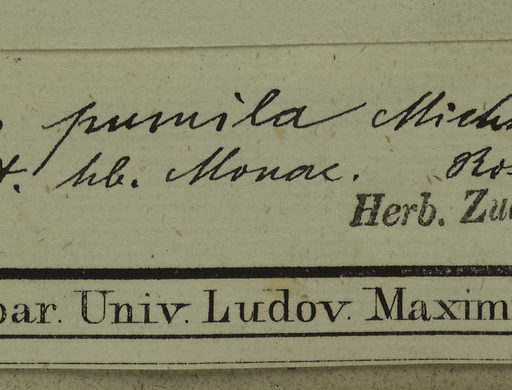 pumila Michx
t. hb. Monac. Ros
Herb. Zuc
par. Univ. Ludov. Maximi